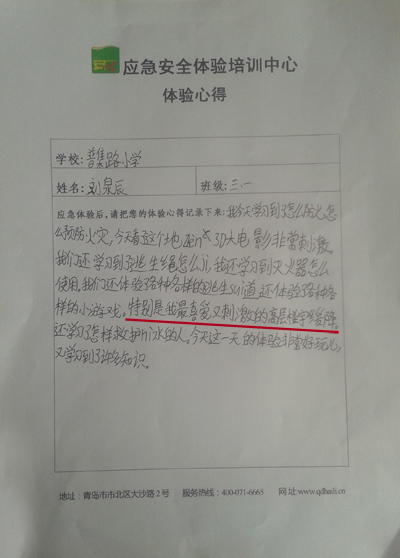 应急安全体验培训中心
体验心得
学校: 普集路小学
姓名: 刘泉辰 班级: 三.一
应急体验后,请把您的体验心得记录下来: 我今天学习到了怎么防火怎
么预防火灾,今天看这个地zen大3D大电影非常刺激,
我们还学习到了逃生绳怎么ji,我还学习到灭火器怎么
使用,我们还体验各种各样的逃生sui道,还体验了各种各
样的小游戏。特别是我最喜爱又刺激的高层楼宇缓降。
还学习了怎样救护ni水的人。今天这一天的体验非常好玩儿,
又学习到了许多知识。
地址:青岛市市北区大沙路2号 服务热线:400-071-6665 网址:www.qdbaili.cn